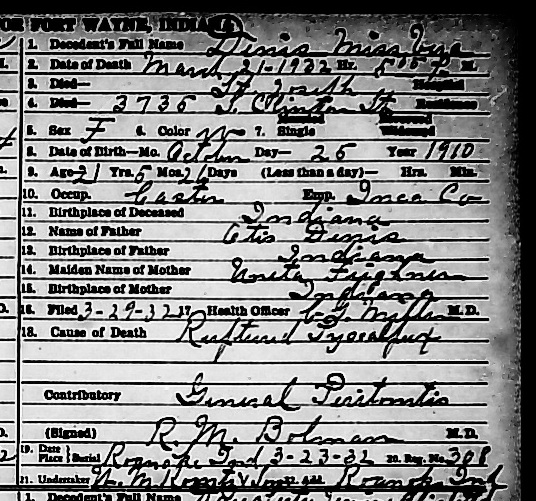 OR FORT WAYNE, INDIANA
1. Decedent's Full Name Denis Miss
2. Date of Death March 21-1932 Hr. M.
3. Died— St. Joseph Hospital
4. Died— 3735 S. Clinton St Residence
5. Sex F 6. Color W 7. Single Married Divorced Widowed
8. Date of Birth—Mo. October Day— 25 Year 1910
9. Age 21 Yrs. 5 Mos. Days (Less than a day)— Hrs. Min.
10. Occup. Emp. Inca Co
11. Birthplace of Deceased Indiana
12. Name of Father Otis Denis
13. Birthplace of Father Indiana
14. Maiden Name of Mother
15. Birthplace of Mother Indiana
16. Filed 3-29-32 17. Health Officer M.D.
18. Cause of Death Ruptured
Contributory General Peritonitis
(Signed) R. M. Bolman M.D.
19. Date Place Burial Roanoke Ind 3-23-32 20. Reg. No. 308
21. Undertaker Roanoke Ind
1. Decedent's Full Name